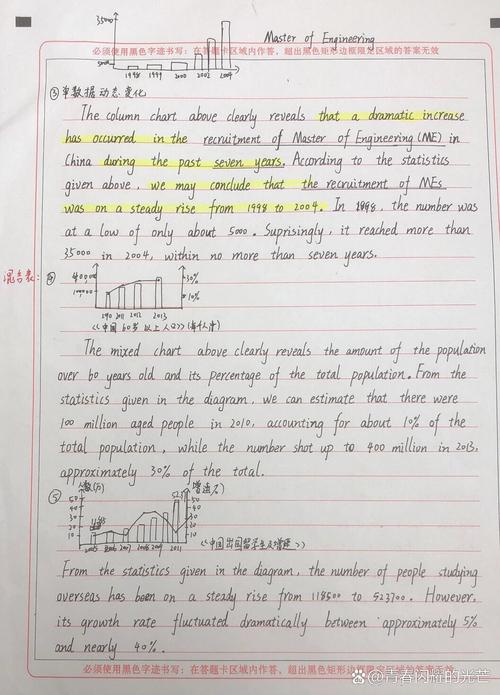 35000
5000
1998 1999 2000 2002 2004
Master of Engineering
必须使用黑色字迹书写：在答题卡区域内作答，超出黑色矩形边框限定区域的答案无效
③单数据动态变化
The column chart above clearly reveals that a dramatic increase
has occurred in the recruitment of Master of Engineering (ME) in
China during the past seven years. According to the statistics
given above, we may conclude that the recruitment of MEs
was on a steady rise from 1998 to 2004. In 1898, the number was
at a low of only about 5000. Suprisingly, it reached more than
35000 in 2004, within no more than seven years.
混合表：④
30%
10%
2011 2012 2013
《中国60岁以上人口》
The mixed chart above clearly reveals the amount of the population
over 60 years old and its percentage of the total population. From the
statistics given in the diagram, we can estimate that there were
100 million aged people in 2010, accounting for about 10% of the
total population, while the number shot up to 400 million in 2013,
approximately 30% of the total.
⑤
人数(万)
50
40
30
20
10
50
40
30
20
10
2005 2006 2007 2008 2009 2011
From the statistics given in the diagram, the number of people studying
overseas has been on a steady rise from 118500 to 523700. However,
its growth rate fluctuated dramatically between approximately 5%
and nearly 40%.
必须使用黑色字迹书写：在答题卡区域内作答，超出黑色矩形边框限定区域的答案无效
@青春闪耀的光芒